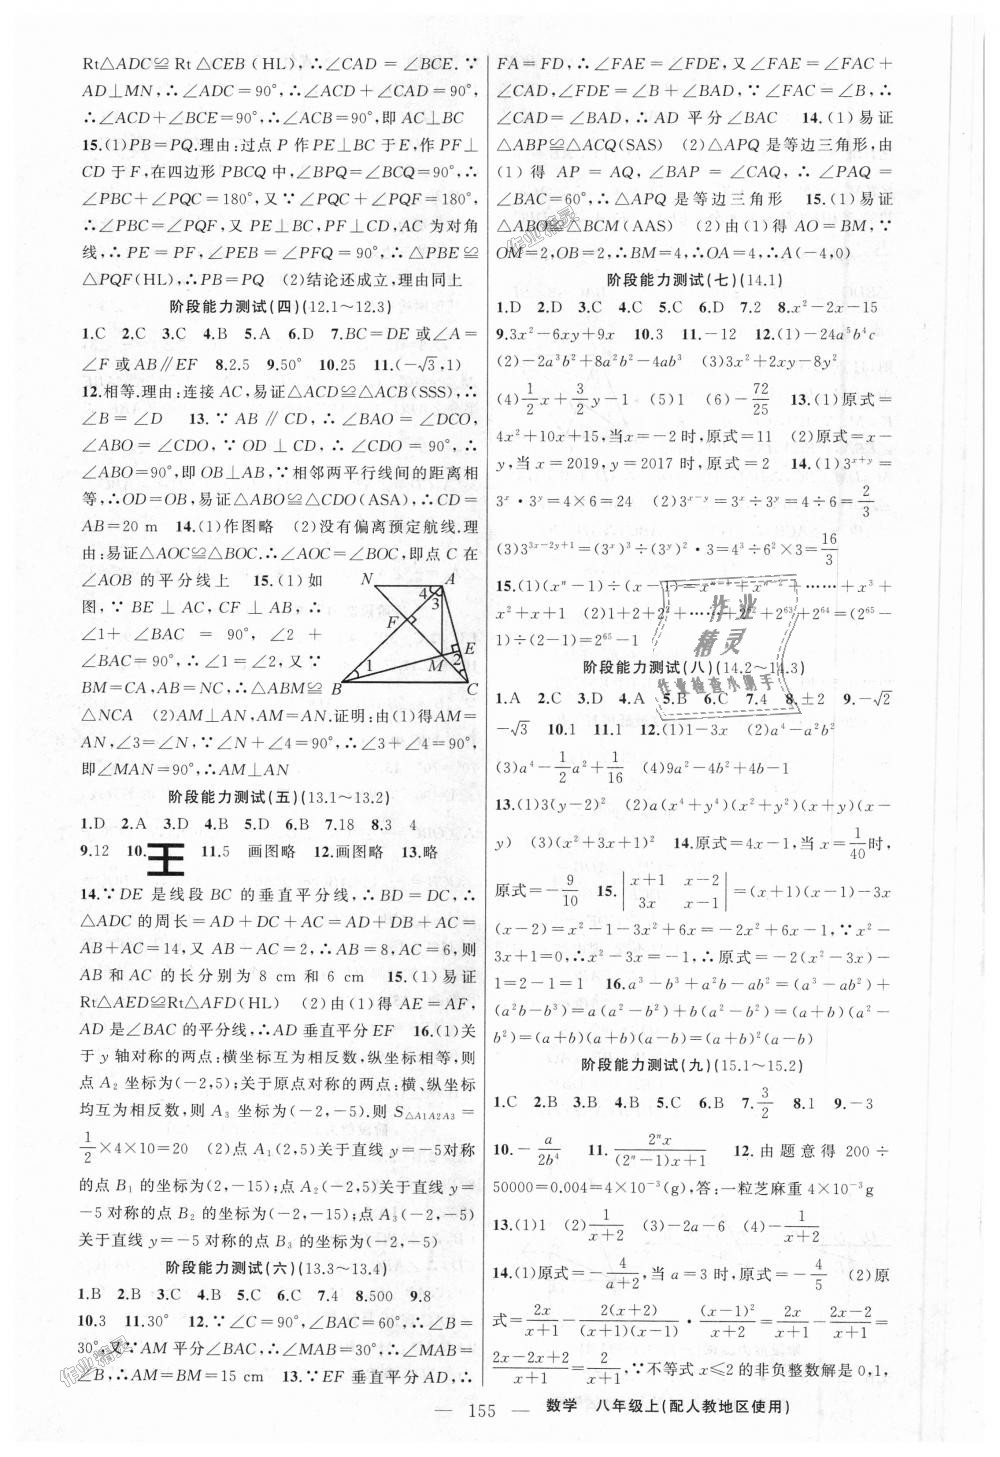 Rt△ADC≌Rt△CEB(HL),∴∠CAD=∠BCE.∵
AD⊥MN,∴∠ADC=90°,∴∠ACD+∠CAD=90°,
∴∠ACD+∠BCE=90°,∴∠ACB=90°,即AC⊥BC
15.(1)PB=PQ.理由:过点P作PE⊥BC于E,作PF⊥
CD于F,在四边形PBCQ中,∠BPQ=∠BCQ=90°,∴
∠PBC+∠PQC=180°,又∵∠PQC+∠PQF=180°,
∴∠PBC=∠PQF,又PE⊥BC,PF⊥CD,AC为对角
线,∴PE=PF,∠PEB=∠PFQ=90°,∴△PBE≌
△PQF(HL),∴PB=PQ (2)结论还成立,理由同上
阶段能力测试(四)(12.1~12.3)
1.C 2.C 3.C 4.B 5.A 6.D 7.BC=DE或∠A=
∠F或AB∥EF 8.2.5 9.50° 10.25 11.(-√3,1)
12.相等.理由:连接AC,易证△ACD≌△ACB(SSS),∴
∠B=∠D 13.∵AB∥CD,∴∠BAO=∠DCO,
∠ABO=∠CDO,∵OD⊥CD,∴∠CDO=90°,∴
∠ABO=90°,即OB⊥AB,∵相邻两平行线间的距离相
等,∴OD=OB,易证△ABO≌△CDO(ASA),∴CD=
AB=20 m 14.(1)作图略 (2)没有偏离预定航线.理
由:易证△AOC≌△BOC.∴∠AOC=∠BOC,即点C在
∠AOB的平分线上 15.(1)如
图,∵BE⊥AC,CF⊥AB,∴
∠1+∠BAC=90°,∠2+
∠BAC=90°,∴∠1=∠2,又∵
BM=CA,AB=NC,∴△ABM≌
△NCA (2)AM⊥AN,AM=AN.证明:由(1)得AM=
AN,∠3=∠N,∵∠N+∠4=90°,∴∠3+∠4=90°,
即∠MAN=90°,∴AM⊥AN
N A 4 3 F E M 2 1 B C
阶段能力测试(五)(13.1~13.2)
1.D 2.A 3.D 4.B 5.D 6.B 7.18 8.3 4
9.12 10.王 11.5 画图略 12.画图略 13.略
14.∵DE是线段BC的垂直平分线,∴BD=DC,∴
△ADC的周长=AD+DC+AC=AD+DB+AC=
AB+AC=14,又AB-AC=2,∴AB=8,AC=6,则
AB和AC的长分别为8 cm和6 cm 15.(1)易证
Rt△AED≌Rt△AFD(HL) (2)由(1)得AE=AF,
AD是∠BAC的平分线,∴AD垂直平分EF 16.(1)关
于y轴对称的两点:横坐标互为相反数,纵坐标相等,则
点A₂坐标为(-2,5);关于原点对称的两点:横、纵坐标
均互为相反数,则A₃坐标为(-2,-5).则S△A1A2A3=
1/2×4×10=20 (2)点A₁(2,5)关于直线y=-5对称
的点B₁的坐标为(2,-15);点A₂(-2,5)关于直线y=
-5对称的点B₂的坐标为(-2,-15);点A₃(-2,-5)
关于直线y=-5对称的点B₃的坐标为(-2,-5)
阶段能力测试(六)(13.3~13.4)
1.B 2.B 3.C 4.B 5.C 6.C 7.4 8.500 9.8
10.3 11.30° 12.∵∠C=90°,∠BAC=60°,∴∠B=
30°,又∵AM平分∠BAC,∴∠MAB=30°,∴∠MAB=
∠B,∴AM=BM=15 cm 13.∵EF垂直平分AD,∴
FA=FD,∴∠FAE=∠FDE,又∠FAE=∠FAC+
∠CAD,∠FDE=∠B+∠BAD,∵∠FAC=∠B,∴
∠CAD=∠BAD,∴AD平分∠BAC 14.(1)易证
△ABP≌△ACQ(SAS) (2)△APQ是等边三角形,由
(1)得AP=AQ,∠BAP=∠CAQ,∴∠PAQ=
∠BAC=60°,∴△APQ是等边三角形 15.(1)易证
△ABO≌△BCM(AAS) (2)由(1)得AO=BM,∵
OM=2,OB=2,∴BM=4,∴OA=4,∴A(-4,0)
阶段能力测试(七)(14.1)
1.D 2.D 3.C 4.C 5.D 6.D 7.2 8.x²-2x-15
9.3x²-6xy+9x 10.3 11.-12 12.(1)-24a⁵b⁴c
(2)-2a³b²+8a²b²-4ab³ (3)3x²+2xy-8y²
(4)1/2x+3/2y-1 (5)1 (6)-72/25 13.(1)原式=
4x²+10x+15,当x=-2时,原式=11 (2)原式=x-
y,当x=2019,y=2017时,原式=2 14.(1)3ˣ⁺ʸ=
3ˣ·3ʸ=4×6=24 (2)3ˣ⁻ʸ=3ˣ÷3ʸ=4÷6=2/3
(3)3³ˣ⁻²ʸ⁺¹=(3ˣ)³÷(3ʸ)²·3=4³÷6²×3=16/3
15.(1)(xⁿ-1)÷(x-1)=xⁿ⁻¹+xⁿ⁻²+……+x³+
x²+x+1 (2)1+2+2²+……+2⁶²+2⁶³+2⁶⁴=(2⁶⁵-
1)÷(2-1)=2⁶⁵-1
阶段能力测试(八)(14.2~14.3)
1.A 2.C 3.D 4.A 5.B 6.C 7.4 8.±2 9.-√2
-√3 10.1 11.1 12.(1)1-3x (2)a⁴-a²b²
(3)a⁴-1/2a²+1/16 (4)9a²-4b²+4b-1
13.(1)3(y-2)² (2)a(x⁴+y⁴)(x²+y²)(x+y)(x-
y) (3)(x²+3x+1)² 14.原式=4x-1,当x=1/40时,
原式=-9/10 15.|x+1 x-2 3x x-1|=(x+1)(x-1)-3x
(x-2)=x²-1-3x²+6x=-2x²+6x-1,∵x²-
3x+1=0,∴x²-3x=-1,∴原式=-2(x²-3x)-
1=2-1=1 16.a³-b³+a²b-ab²=(a³-ab²)+
(a²b-b³)=a(a²-b²)+b(a²-b²)=(a+b)(a²-
b²)=(a+b)(a+b)(a-b)=(a+b)²(a-b)
阶段能力测试(九)(15.1~15.2)
1.C 2.B 3.B 4.B 5.C 6.B 7.3/2 8.1 9.-3
10.-a/2b⁴ 11.2ⁿx/(2ⁿ-1)x+1 12.由题意得200÷
50000=0.004=4×10⁻³(g),答:一粒芝麻重4×10⁻³g
13.(1)1 (2)1/x+2 (3)-2a-6 (4)-1/x+2
14.(1)原式=-4/a+2,当a=3时,原式=-4/5 (2)原
式=2x/x+1-2(x+2)/(x+1)(x-1)·(x-1)²/x+2=2x/x+1-2x-2/x+1=
2x-2x+2/x+1=2/x+1,∵不等式x≤2的非负整数解是0,1,
— 155 — 数学 八年级上(配人教地区使用)
作业精灵
作业精灵
作业
精灵
作业检查小助手